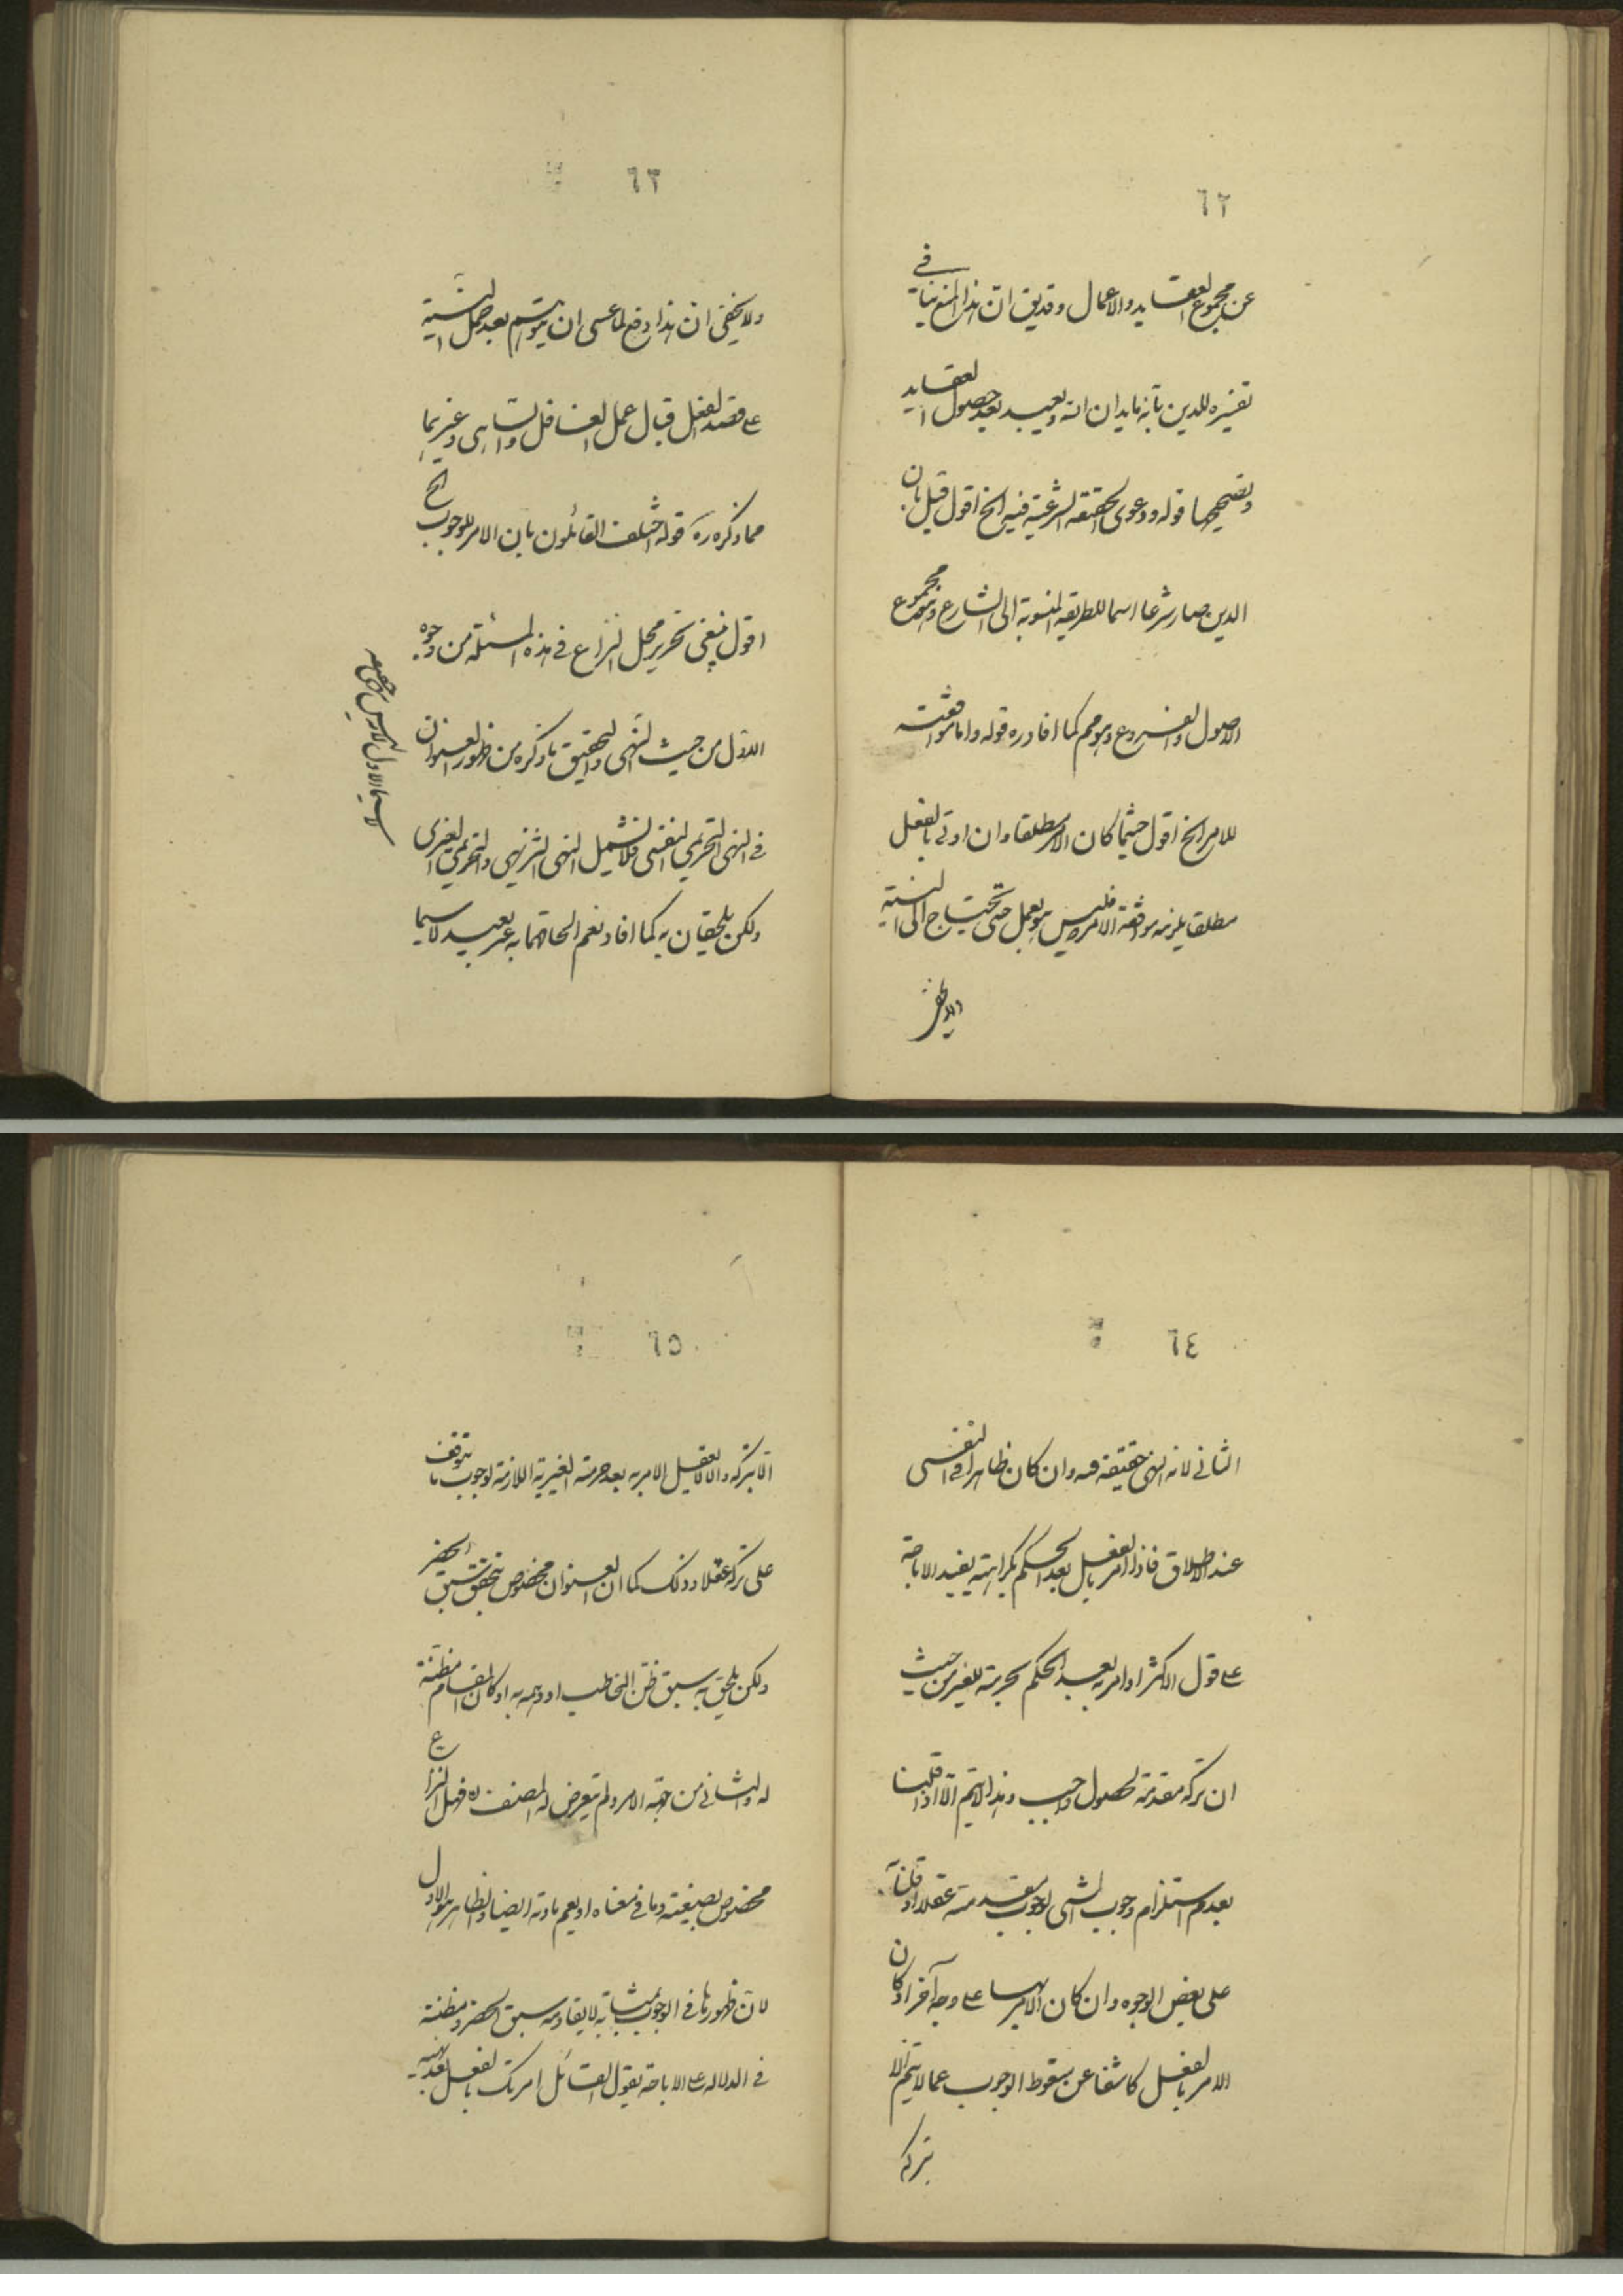 ٦٢
عن مجموع العقايد والاعمال وقد يق ان هذا المنع ينافي
تفسيره للدين بانه ما يدان الله وتعبد بعد حصول العقايد
وتصحيحها قوله ودعوى الحقيقة الشرعية فيه الخ اقول قيل بان
الدين صار شرعا اسما للطريقة المنسوبة الى الشارع وهو مجموع
الاصول والفروع وهو مم كما افاد ره قوله واما موافقته
للامر الخ اقول حيثما كان الامر مطلقا وان اوتى بالفعل
مطلقا يلزمه موافقة الامر وليس هو بعمل حتى يحتاج الى النية
ولا يخفى
٦٣
ولا يخفى ان هذا دفع لما عسى ان يتوهم بعد حمل النية
على قصد الفعل قبال عمل الغافل والساهى وغيرهما
مما ذكره ره قوله اختلف القائلون بان الامر للوجوب الخ
اقول ينبغى تحرير محل النزاع في هذه المسئلة من وجوه
الاول من حيث النهى والتحقيق ما ذكره من ظهور العنوان
في النهى التحريمى النفسى فلا يشمل النهى التنزيهى والتحريمى الغيرى
ولكن يلحقان به كما افاد نعم الحاقهما به غير بعيد لا سيما
لا سيما الاول
٦٤
الثانى لانه النهى حقيقة فيه وان كان ظاهرا في النفسى
عند الاطلاق فاذا امر بالفعل بعد الحكم بكراهته يفيد الاباحة
على قول الاكثر او امر به بعد الحكم بحرمته للغير من حيث
ان تركه مقدمة لحصول واجب وهذا لا يتم الا اذا قلنا
بعدم استلزام وجوب الشى لوجوب مقدمته عقلا او قلنا به
على بعض الوجوه وان كان الامر بها على وجه آخر او كان
الامر بالفعل كاشفا عن سقوط الوجوب عما لا يتم الا
بتركه
٦٥
الا بتركه والا لا يعقل الامر به بعد حرمته الغيرية اللازمة لوجوب ما يتوقف
على تركه عقلا وذلك كما ان العنوان مخصوص بتحقق سبق الحضر
ولكن يلحق به سبق ظن المخاطب او وهمه به او كان المقام مظنة
له والثانى من جهة الامر ولم يتعرض له المصنف ره فهل النزاع
مخصوص بصيغته وما في معناه او يعم مادته ايضا والظاهر هو الاول
لان ظهورها في الوجوب بمثابة لا يقاومه سبق الحضر ومظنته
في الدلالة على الاباحة يقول القائل امرتك بالفعل بعد نهيه